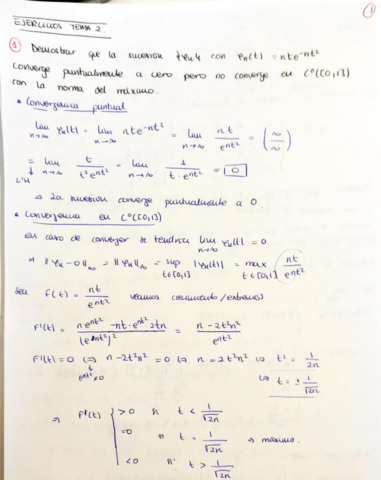 1
EJERCICIOS TEMA 2
① Demostrar que la sucesión {φn} con φn(t) = nte^-nt²
converge puntualmente a cero pero no converge en C⁰([0,1])
con la norma del máximo.
• Convergencia puntual
lim n→∞ φn(t) = lim n→∞ nte^-nt² = lim n→∞ nt/e^nt² = (∞/∞)
= L'H lim n→∞ t/t²e^nt² = lim n→∞ 1/t·e^nt² = 0
⇒ La sucesión converge puntualmente a 0.
• Convergencia en C⁰([0,1])
En caso de converger se tendría lim n→∞ φn(t) = 0
⇒ ||φn-0||∞ = ||φn||∞ = sup t∈[0,1] |φn(t)| = max t∈[0,1] nt/e^nt²
Sea f(t) = nt/e^nt² veamos crecimiento/extremos
f'(t) = n·e^nt² - nt·e^nt² 2tn/(e^nt²)² = n-2t²n²/e^nt²
f'(t)=0 ⇔ n-2t²n²=0 ⇔ n=2t²n² ⇔ t²=1/2n
e^nt²≠0 ⇔ t=±1/√2n
⇒ f'(t) { >0 si t < 1/√2n
=0 si t = 1/√2n ⇒ máximo.
<0 si t > 1/√2n